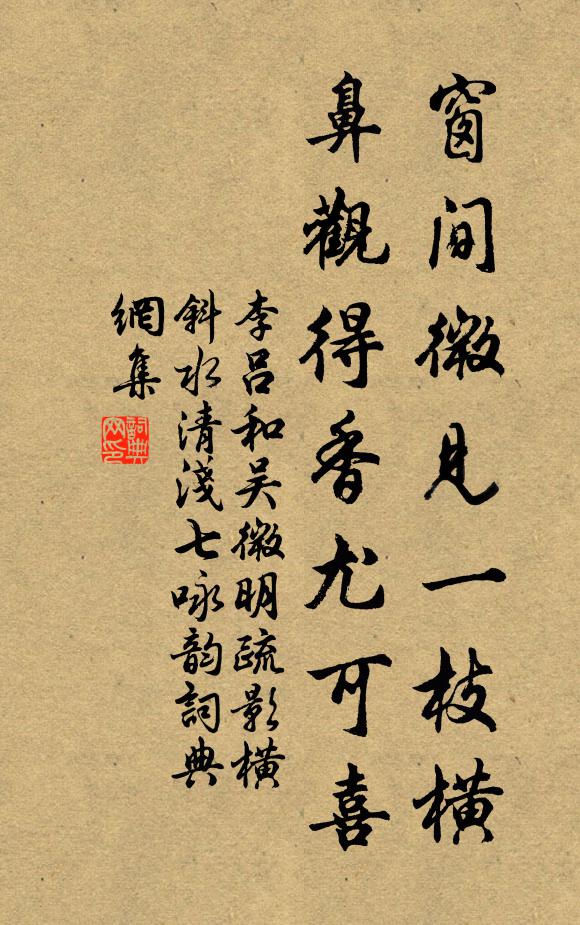 窗间微見一枝横
鼻觀得香尤可喜
李吕和吴微明疏影横
斜水清淺七咏韵詞典
網集
詞典網印